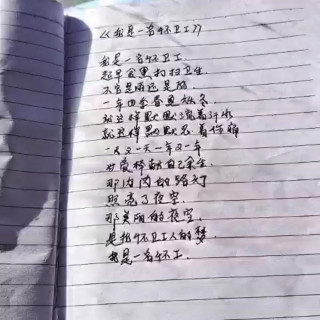 《我是一名怀卫工》
我是一名怀卫工
起早贪黑打扫卫生
不管是雨还是阴
一年四季春夏秋冬
就这样默默流着汗水
就这样默默忍着伤痛
一天又一天一年又一年
也愿奉献自己余生
那闪闪的路灯
照亮了夜空
那美丽的夜空
是我怀卫工人的梦
我是一名怀工